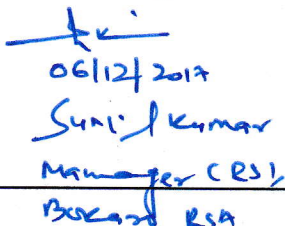 06/12/2017
Sunil Kumar
Manager (RS),
Bokaro RSA